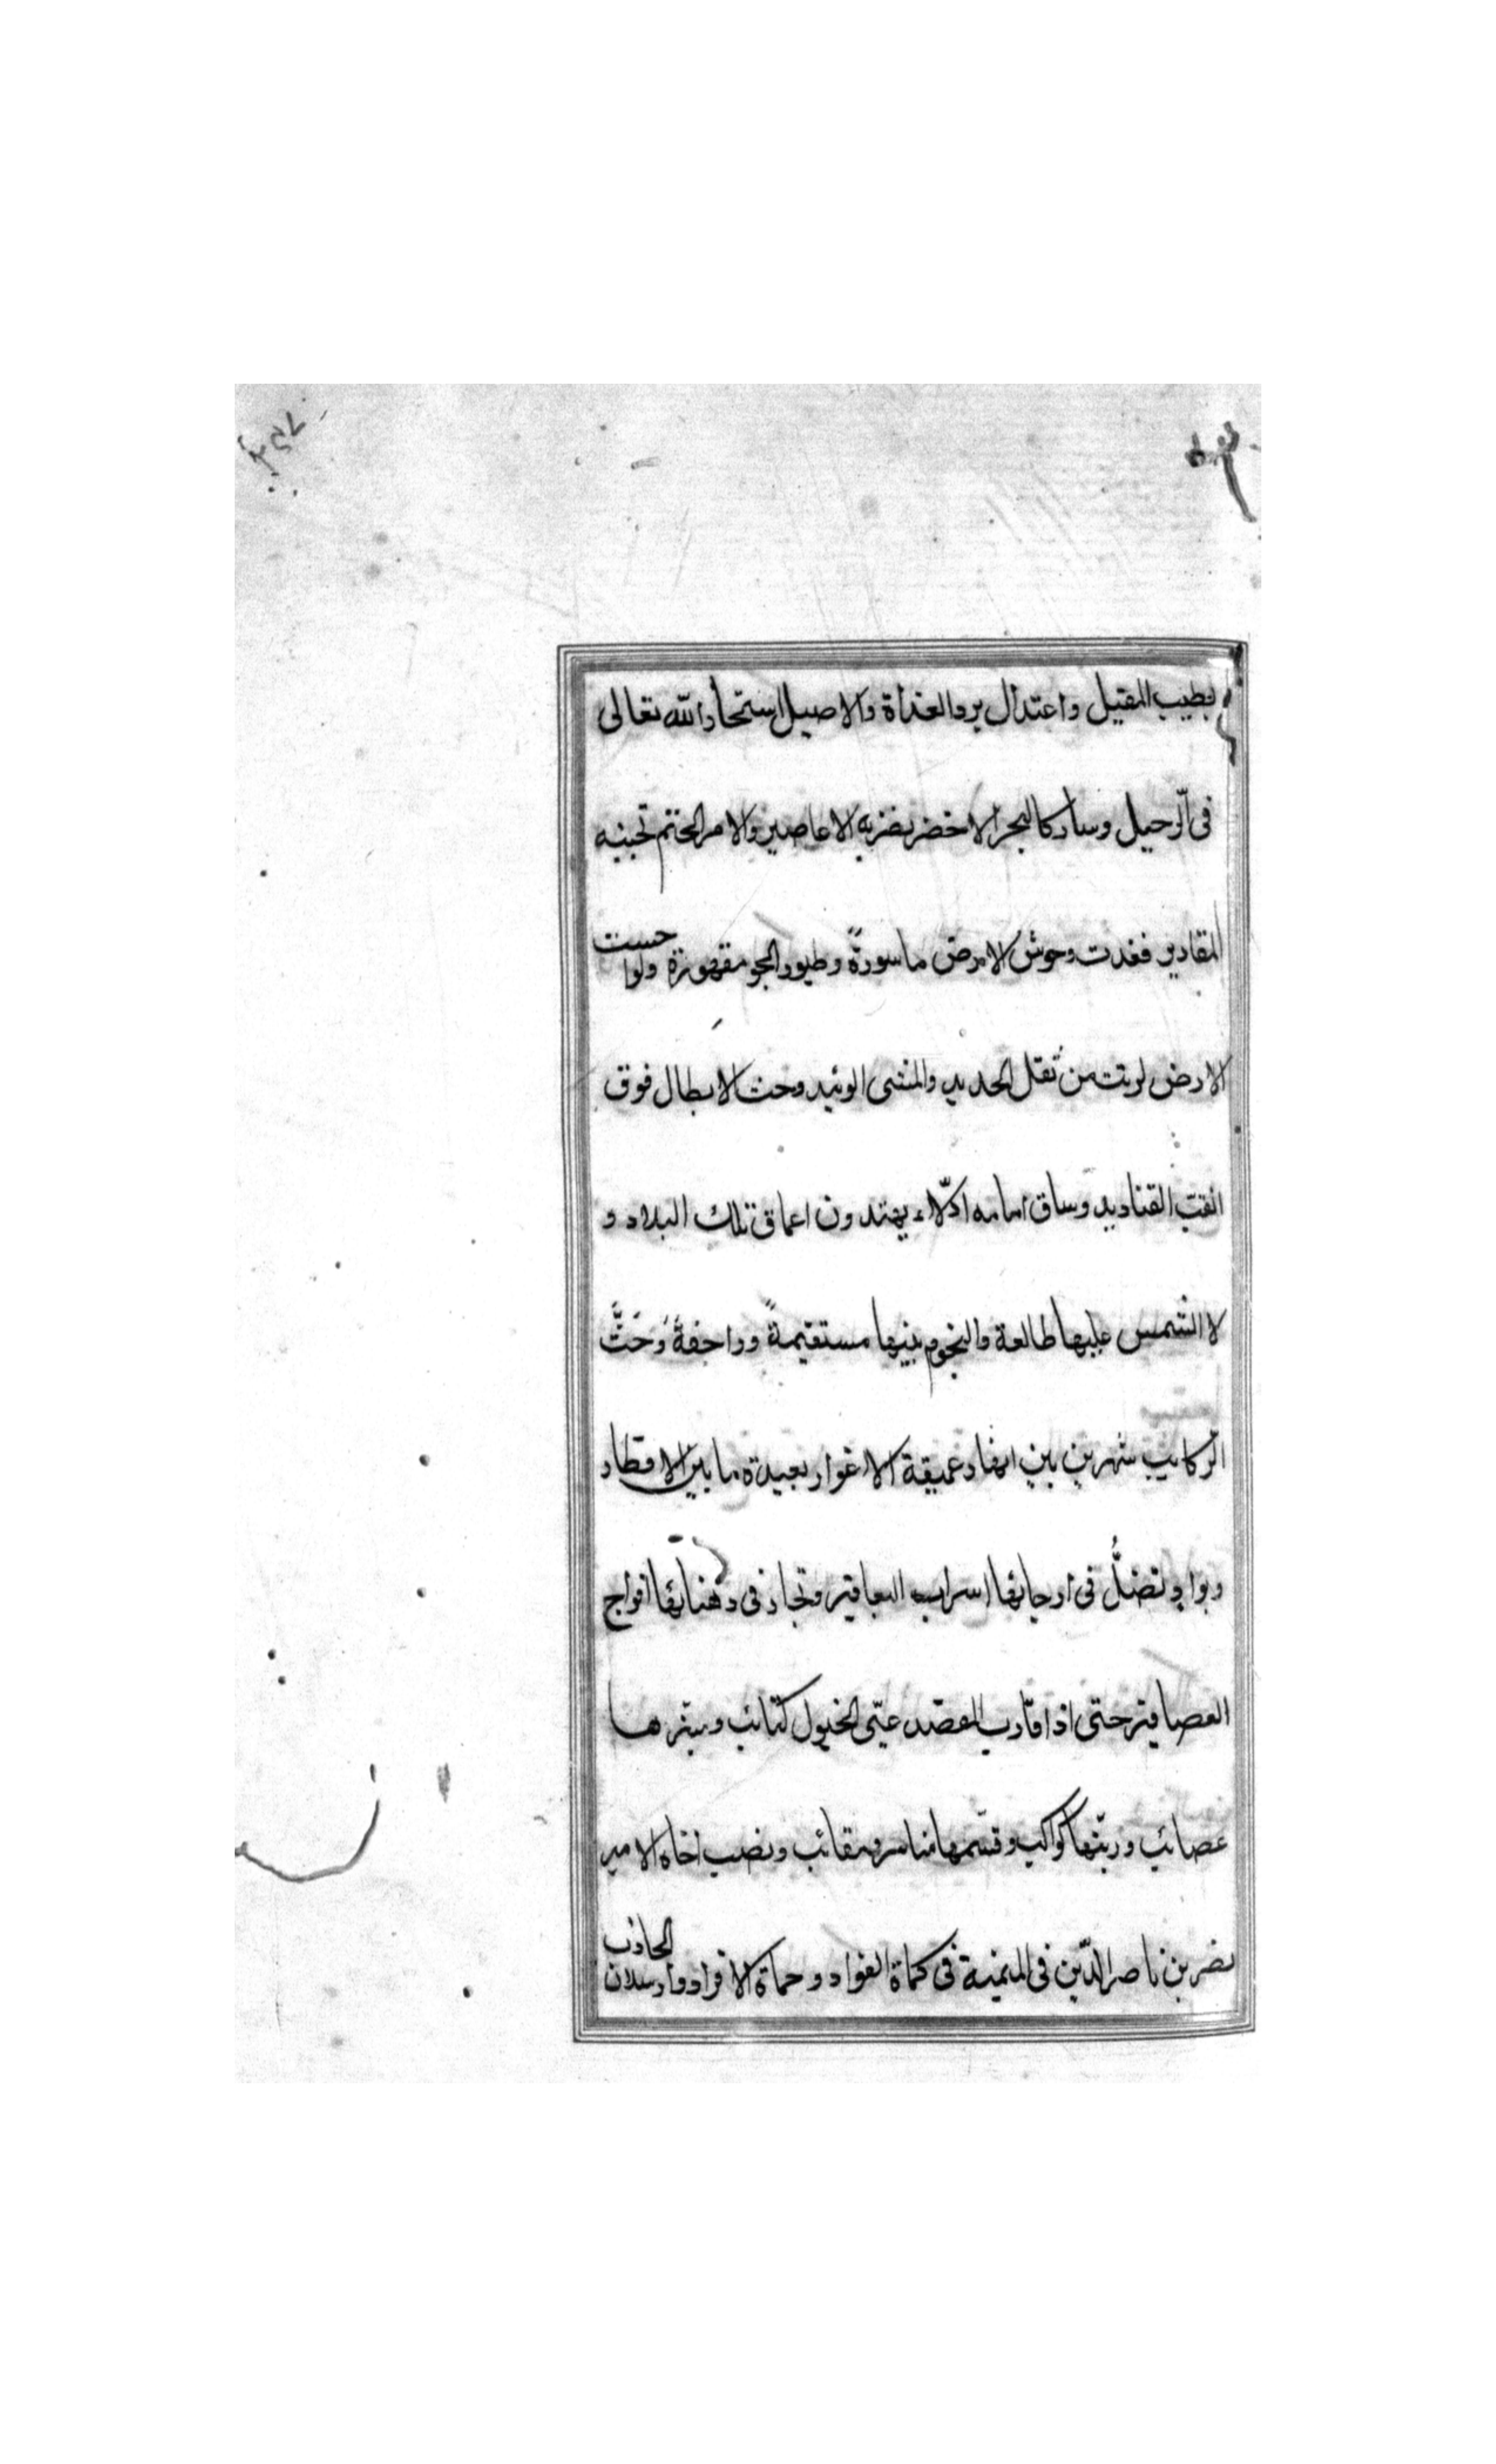 بطيب المقيل واعتدال برد الغداة والاصيل استخار الله تعالى
فى الرّحيل وسار كالبحر الاخضر تضربه الاعاصير والامر الحتم تجنبه
المقادير فغدت وحوش الارض ماسورةً وطيور الجو مقهورة ولوا حست
الارض لرنت من ثقل الحديد والمشى الوئيد وحث الابطال فوق
القناديد وساق امامه ادلّاء يهتدون اعماق تلك البلاد و
لا الشمس عليها طالعة والنجوم بينها مستقيمةً وراجفةً وَحَثَّ
الركايب شهرين بين انهار عميقة الاغوار بعيدة ما بين الاقطار
وبوادٍ تضلُّ فى ارجائها اسراب اليعافير وتحار فى دهنائها افواج
العصافير حتى اذا قارب المقصد عبّى الخيول كتائب وسيّرها
عصائب ورتبها كواكب وقسّمها مناسر ومقانب ونصب اخاه الامير
نصر بن ناصر الدّين فى الميمنة فى كماة القواد وحماة الافراد وارسلان الجاذب